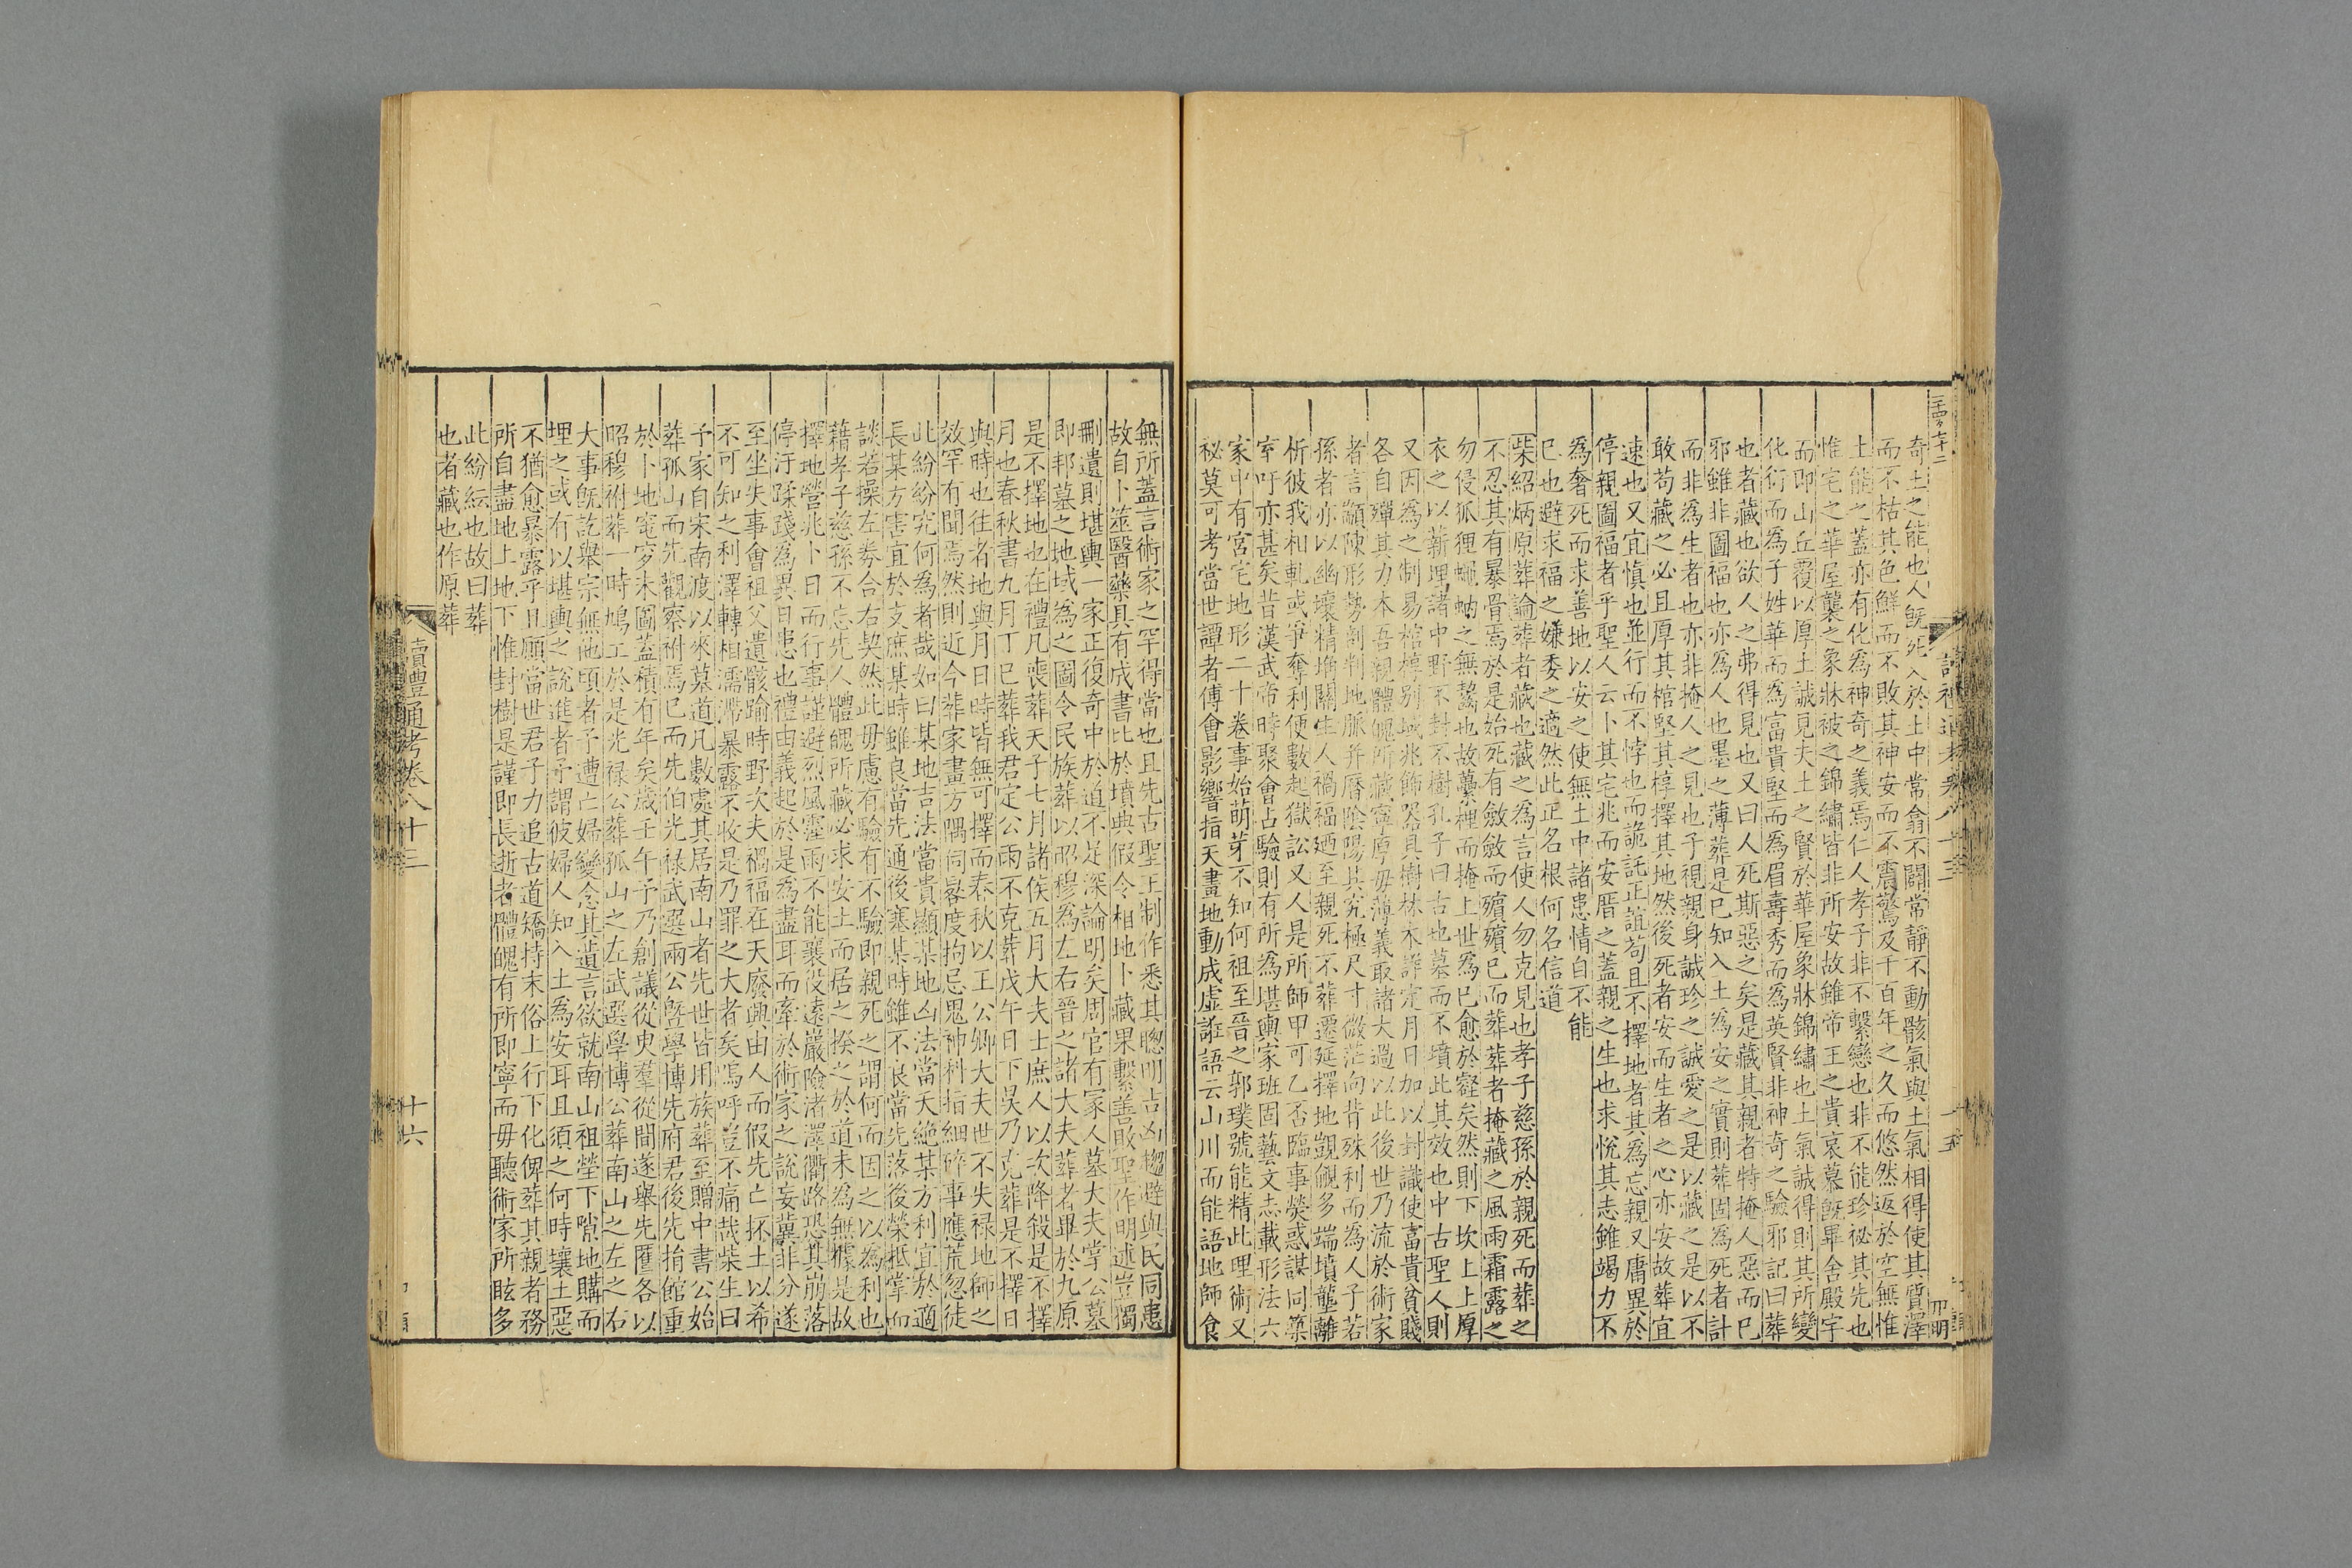 奇土之能也人旣死入於土中常翕不闢常靜不動骸氣與土氣相得使其質澤
而不枯其色鮮而不敗其神安而不震驚及千百年之久而悠然返於空無惟
土能之蓋亦有化爲神奇之義焉仁人孝子非不繫戀也非不能珍祕其先也
惟宅之華屋襲之象牀被之錦繡皆非所安故雖帝王之貴哀慕旣畢舍殿宇
而卽山丘覆以厚土誠見夫土之賢於華屋象牀錦繡也土氣誠得則其所變
化衍而爲子姓華而爲富貴堅而爲眉壽秀而爲英賢非神奇之驗邪記曰葬
也者藏也欲人之弗得見也又曰人死斯惡之矣是藏其親者特掩人惡而已
邪雖非圖福也亦爲人也墨之薄葬是已知入土爲安之實則葬固爲死者計
而非爲生者也亦非掩人之見也子視親身誠珍之誠愛之是以藏之是以不
敢苟藏之必且厚其棺堅其椁擇其地然後死者安而生者之心亦安故葬宜
速也又宜慎也並行而不悖也而詭託正誼苟且不擇地者其爲忘親又庸異於
停親圖福者乎聖人云卜其宅兆而安厝之蓋親之生也求悅其志雖竭力不
爲奢死而求善地以安之使無土中諸患情自不能
已也避求福之嫌委之適然此正名根何名信道
柴紹炳原葬論葬者藏也藏之爲言使人勿克見也孝子慈孫於親死而葬之
不忍其有暴骨焉於是始死有斂斂而殯殯已而葬葬者掩藏之風雨霜露之
勿侵狐狸蠅蚋之無齧也故虆梩而掩上世爲已愈於壑矣然則下坎上上厚
衣之以薪埋諸中野不封不樹孔子曰古也墓而不墳此其效也中古聖人則
又因爲之制易棺椁别域兆飾器具樹林木詳定月日加以封識使富貴貧賤
各自殫其力本吾親體魄所藏寧厚毋薄義取諸大過以此後世乃流於術家
者言顓陳形勢剖判地脈并曆陰陽其究極尺寸微茫向背殊利而爲人子若
孫者亦以幽壤精搆關生人禍福廼至親死不葬遷延擇地覬覦多端墳壟離
析彼我相軋或爭奪利便數起獄訟又人是所師甲可乙否臨事熒惑謀同築
室吁亦甚矣昔漢武帝時聚會占驗則有所爲堪輿家班固藝文志載形法六
家中有宮宅地形二十卷事始萌芽不知何祖至晉之郭璞號能精此理術又
祕莫可考當世譚者傅會影響指天畫地動成虛誑語云山川而能語地師食
無所蓋言術家之罕得當也且先古聖王制作悉其聰明占凶趨避與民同患
故自卜筮醫藥具有成書比於墳典假令相地卜藏果繫善敗聖作明述豈獨
刪遺則堪輿一家正復奇中於道不足深論明矣周官有冢人墓大夫掌公墓
卽邦墓之地域爲之圖令民族葬以昭穆爲左右晉之諸大夫葬者畢於九原
是不擇地也在禮凡喪葬天子七月諸侯五月大夫士庶人以次降殺是不擇
月也春秋書九月丁巳葬我君定公雨不克葬戊午日下昃乃克葬是不擇日
與時也往者地與月日時皆無可擇而春秋以王公卿大夫世不失祿地師之
效罕有聞焉然則近今葬家畫方隅伺晷度拘忌鬼神料指細碎事應荒忽徒
此紛紛究何爲者哉如曰某地吉法當貴顯某地凶法當夭絶某方利宜於適
長某方害宜於支庶某時雖良當先通後塞某時雖不良當先落後榮抵掌而
談若操左劵合右契然此毋慮有驗有不驗卽親死之謂何而因之以爲利也
藉孝子慈孫不忘先人體魄所藏必求安土而居之揆之於道未爲無據是故
擇地營兆卜日而行事謹避烈風霪雨不能襄役遠嚴險渚澤衢路恐其崩落
停汙蹂踐爲異日患也禮由義起於是爲盡耳而牽於術家之說妄冀非分遂
至坐失事會祖父遺骸踰時野次夫禍福在天廢興由人而假先亡抔土以希
不可知之利澤轉相濡滯暴露不收是乃罪之大者矣嗚呼豈不痛哉柴生曰
予家自宋南渡以來墓道凡數處其居南山者先世皆用族葬至贈中書公始
葬孤山而先觀察祔焉已而先伯光祿武選兩公曁學博先府君後先捐館重
於卜地窀穸未圖蓋積有年矣歲壬午予乃創議從臾羣從間遂舉先匶各以
昭穆祔葬一時鳩工於是光祿公葬孤山之左武選學博公葬南山之左之右
大事旣訖舉宗無他頃者予遭亡婦變念其遺言欲就南山祖塋下隙地購而
埋之或有以堪輿之說進者予謂彼婦人知入土爲安耳且須之何時壤土惡
不猶愈暴露乎且願當世君子力追古道矯持末俗上行下化俾葬其親者務
所自盡地上地下惟封樹是謹卽長逝者體魄有所卽寧而毋聽術家所眩多
此紛紜也故曰葬
也者藏也作原葬
讀禮通考卷八十三
十六